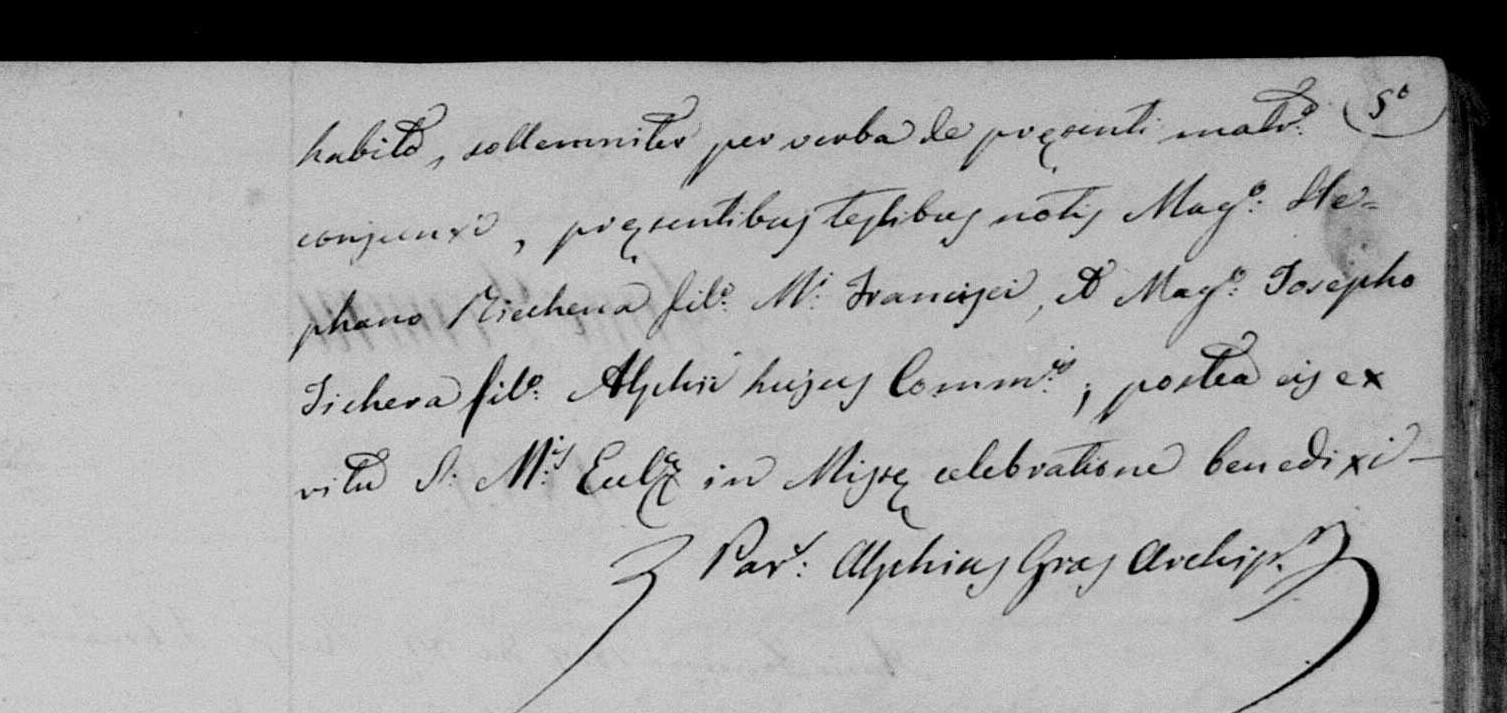 habito, sollemniter per verba de pręsenti matr.º 5º
conjunxi, pręsentibus testibus notis Mag.º Ste=
phano Richena fil.º M.i Francisci, et Mag.º Josepho
Fichera fil.º Alphii hujus Comm.is; postea eis ex
ritu S. M.is Ecclę in Missę celebratione benedixi —
Par.s Alphius Gras Archip.r